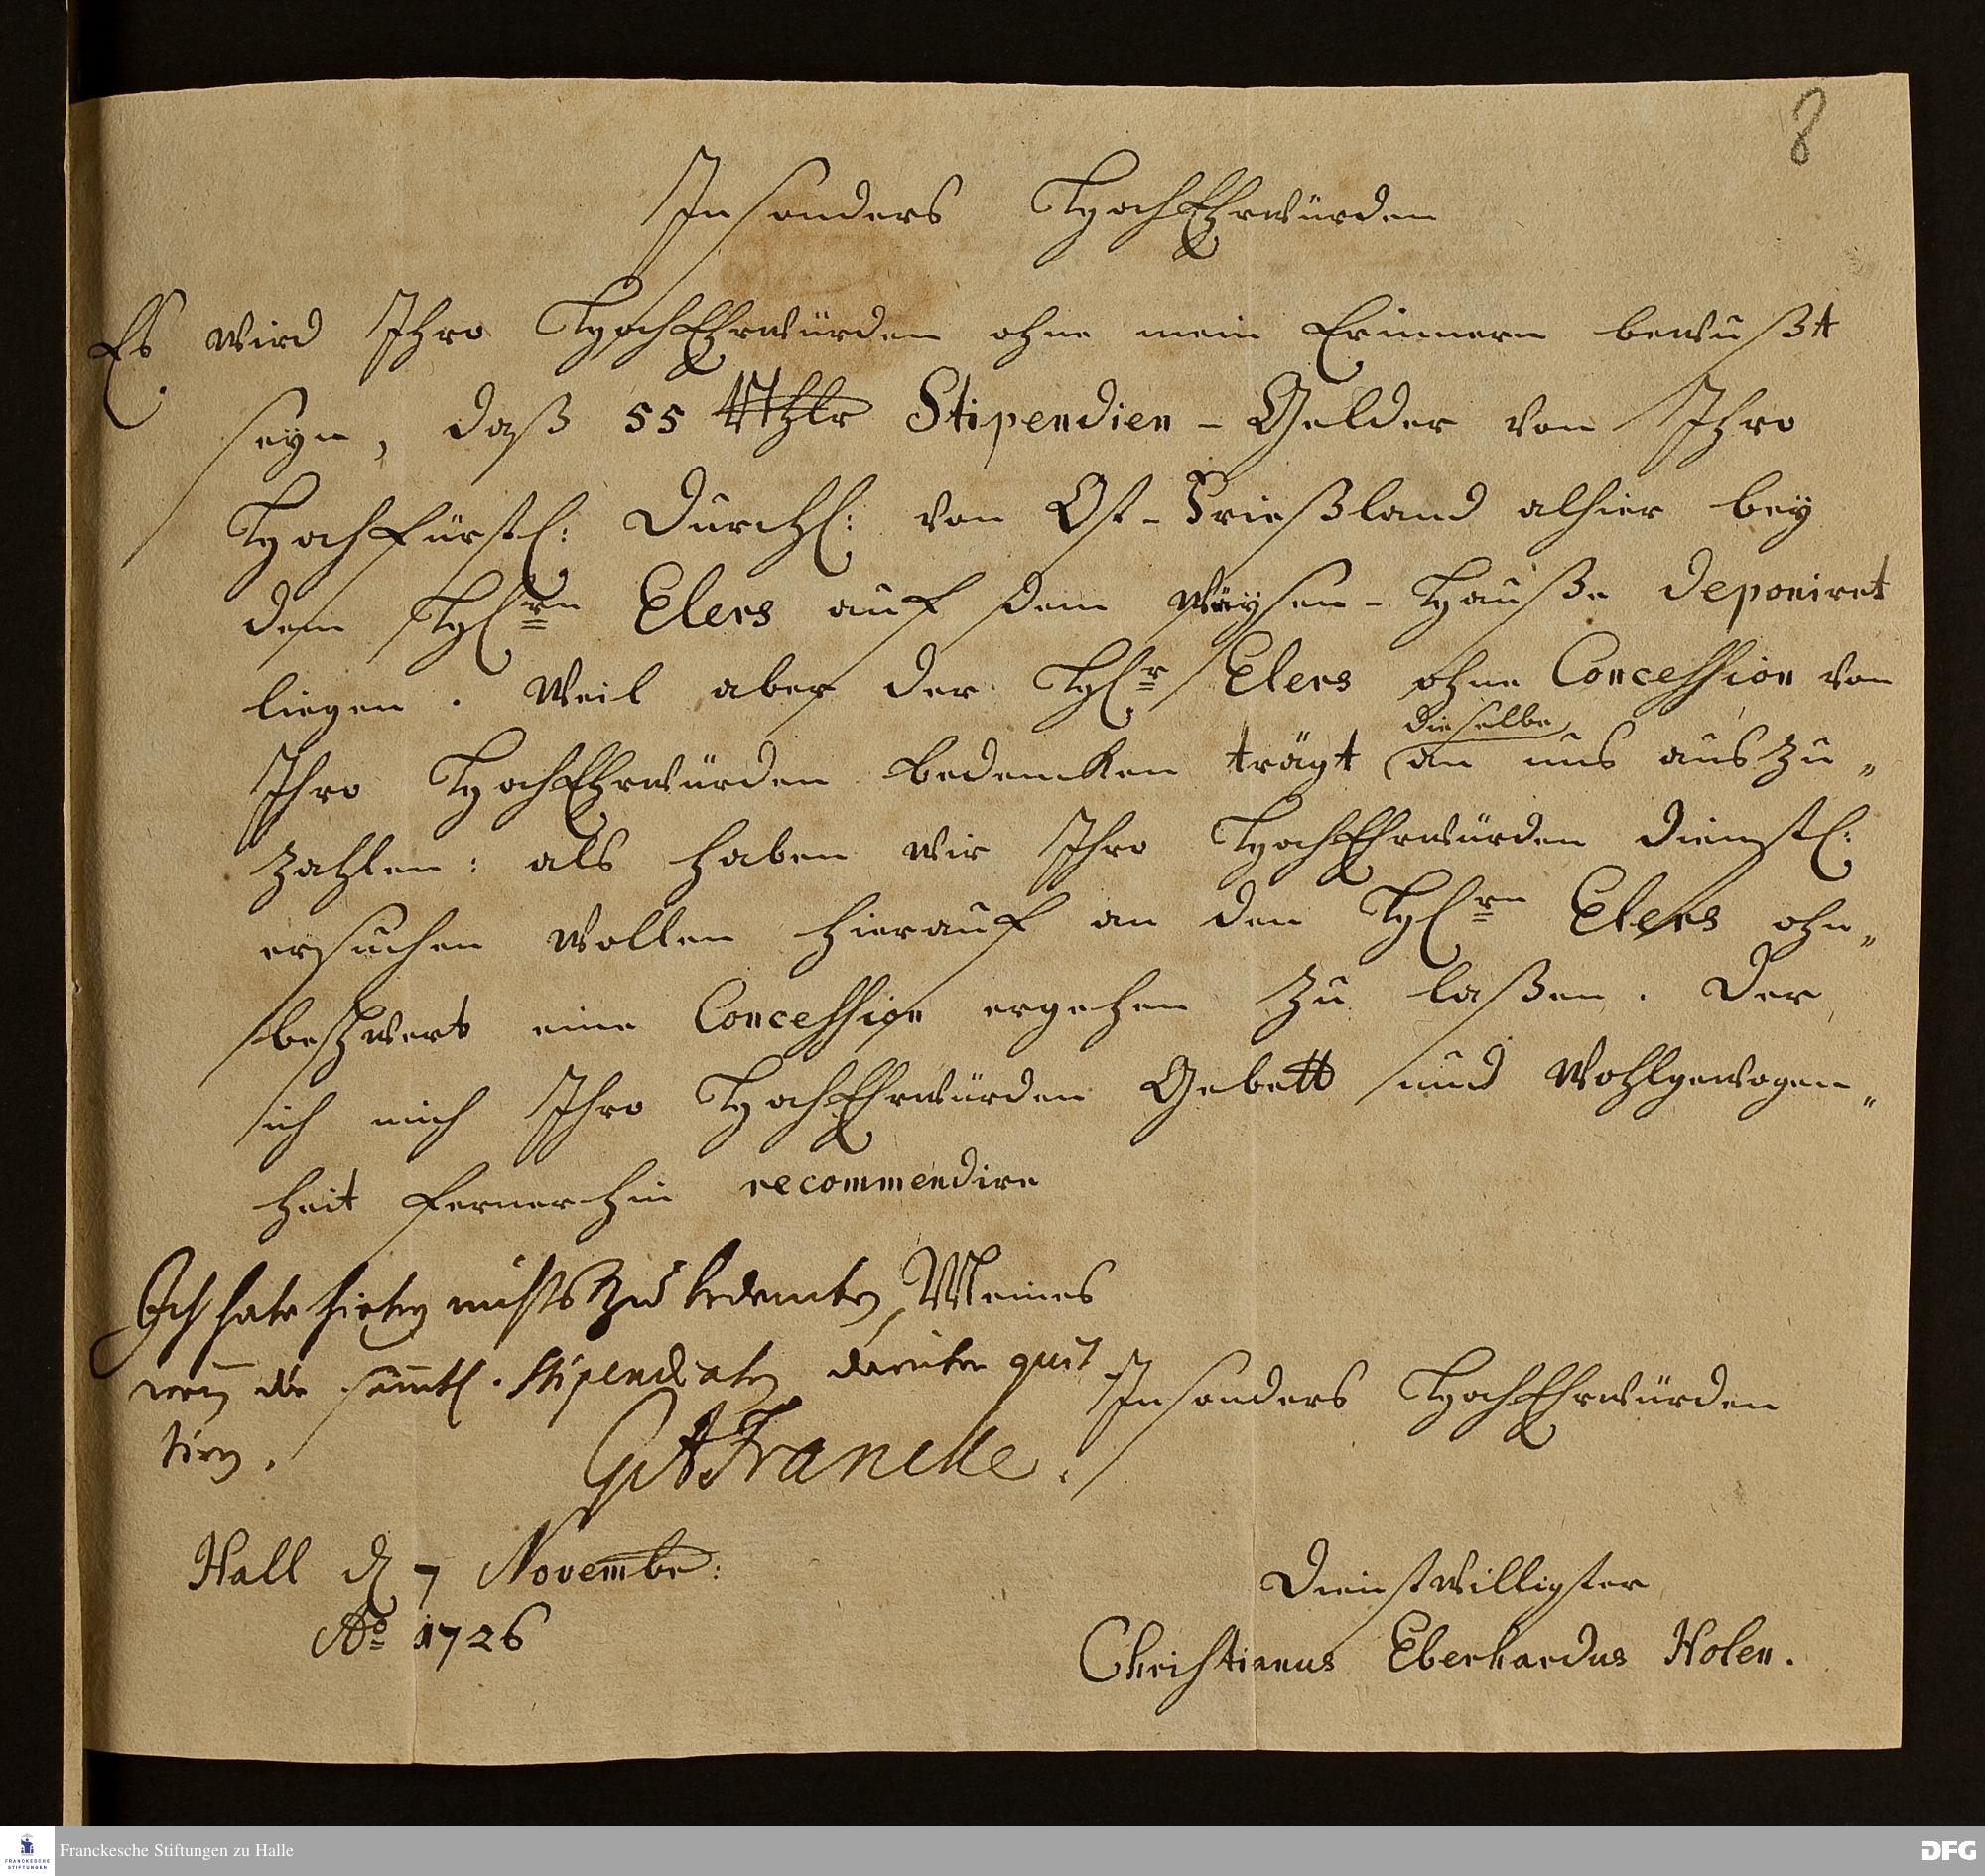 8
Insonders HochEhrwürden
Es wird Ihro HochEhrwürden ohne mein Erinnern bewußt
seyn, daß 55 Rthlr Stipendien-Gelder von Ihro
Hochfürstl: Durchl: von Ost-Frießland alhier bey
dem HErrn Elers auf dem Wäysen-Hauße deponiret
liegen. Weil aber der HErr Elers ohne Concession von
dieselbe
Ihro HochEhrwürden bedencken trägt an uns auszu„
zahlen: als haben wir Ihro HochEhrwürden dienstl:
ersuchen wollen hierauf an den HErrn Elers ohn„
beschwert eine Concession ergehen zu laßen. Der
ich mich Ihro HochEhrwürden Gebett und Wohlgewogen„
heit fernerhin recommendire
Ich habe hiebey nichts zu bedencken, Meines
wenn die sämtl. Stipendiaten darüber quit
tiren.
Insonders HochEhrwürden
GAFrancke.
Hall d 7 Novembr:
Ao 1726
Dienstwilligster
Christianus Eberhardus Holen.
Franckesche Stiftungen zu Halle
FRANCKESCHE STIFTUNGEN
DFG